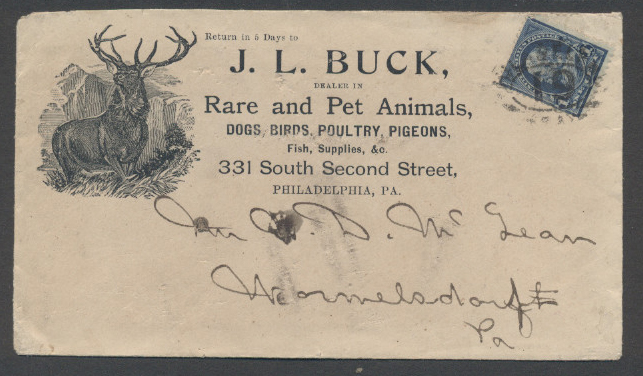 Return in 5 Days to
J. L. BUCK,
DEALER IN
Rare and Pet Animals,
DOGS, BIRDS, POULTRY, PIGEONS,
Fish, Supplies, &c.
331 South Second Street,
PHILADELPHIA, PA.
D. Mc Lean
Womelsdorf
Pa